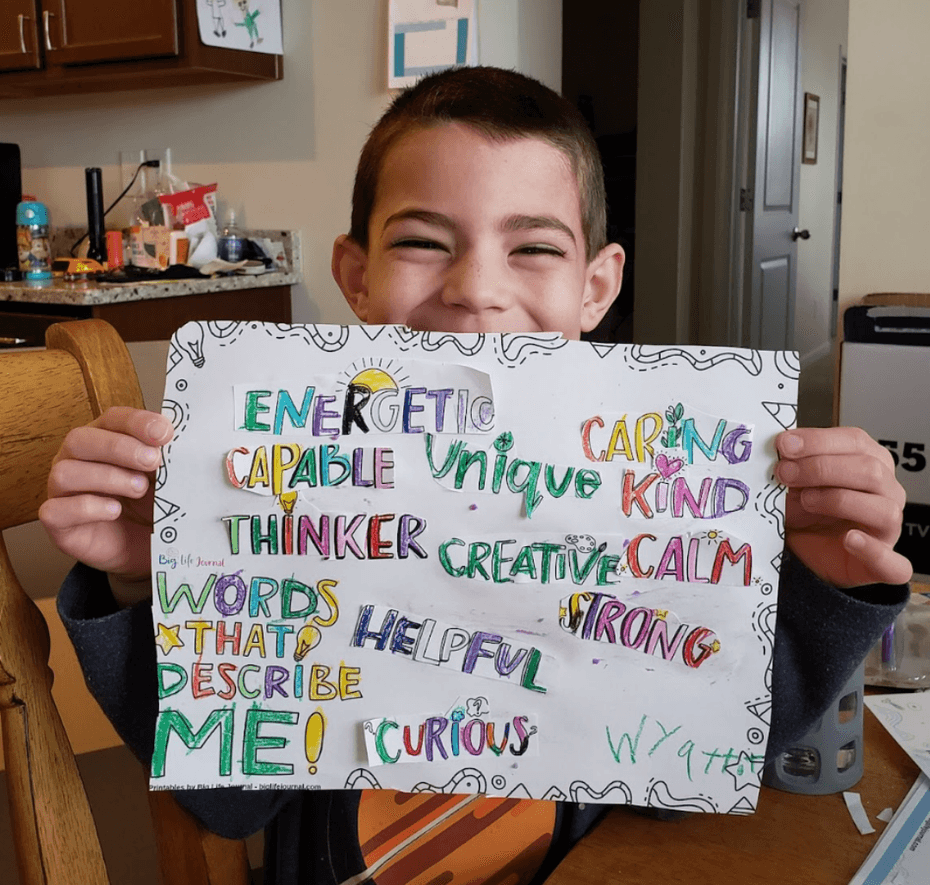 ENERGETIC
CARING
CAPABLE
Unique
KIND
THINKER
CREATIVE
CALM
Big Life Journal
WORDS
THAT
DESCRIBE
ME!
HELPFUL
STRONG
CURIOUS
Wyatt
Printables by Big Life Journal - biglifejournal.com
55
TV